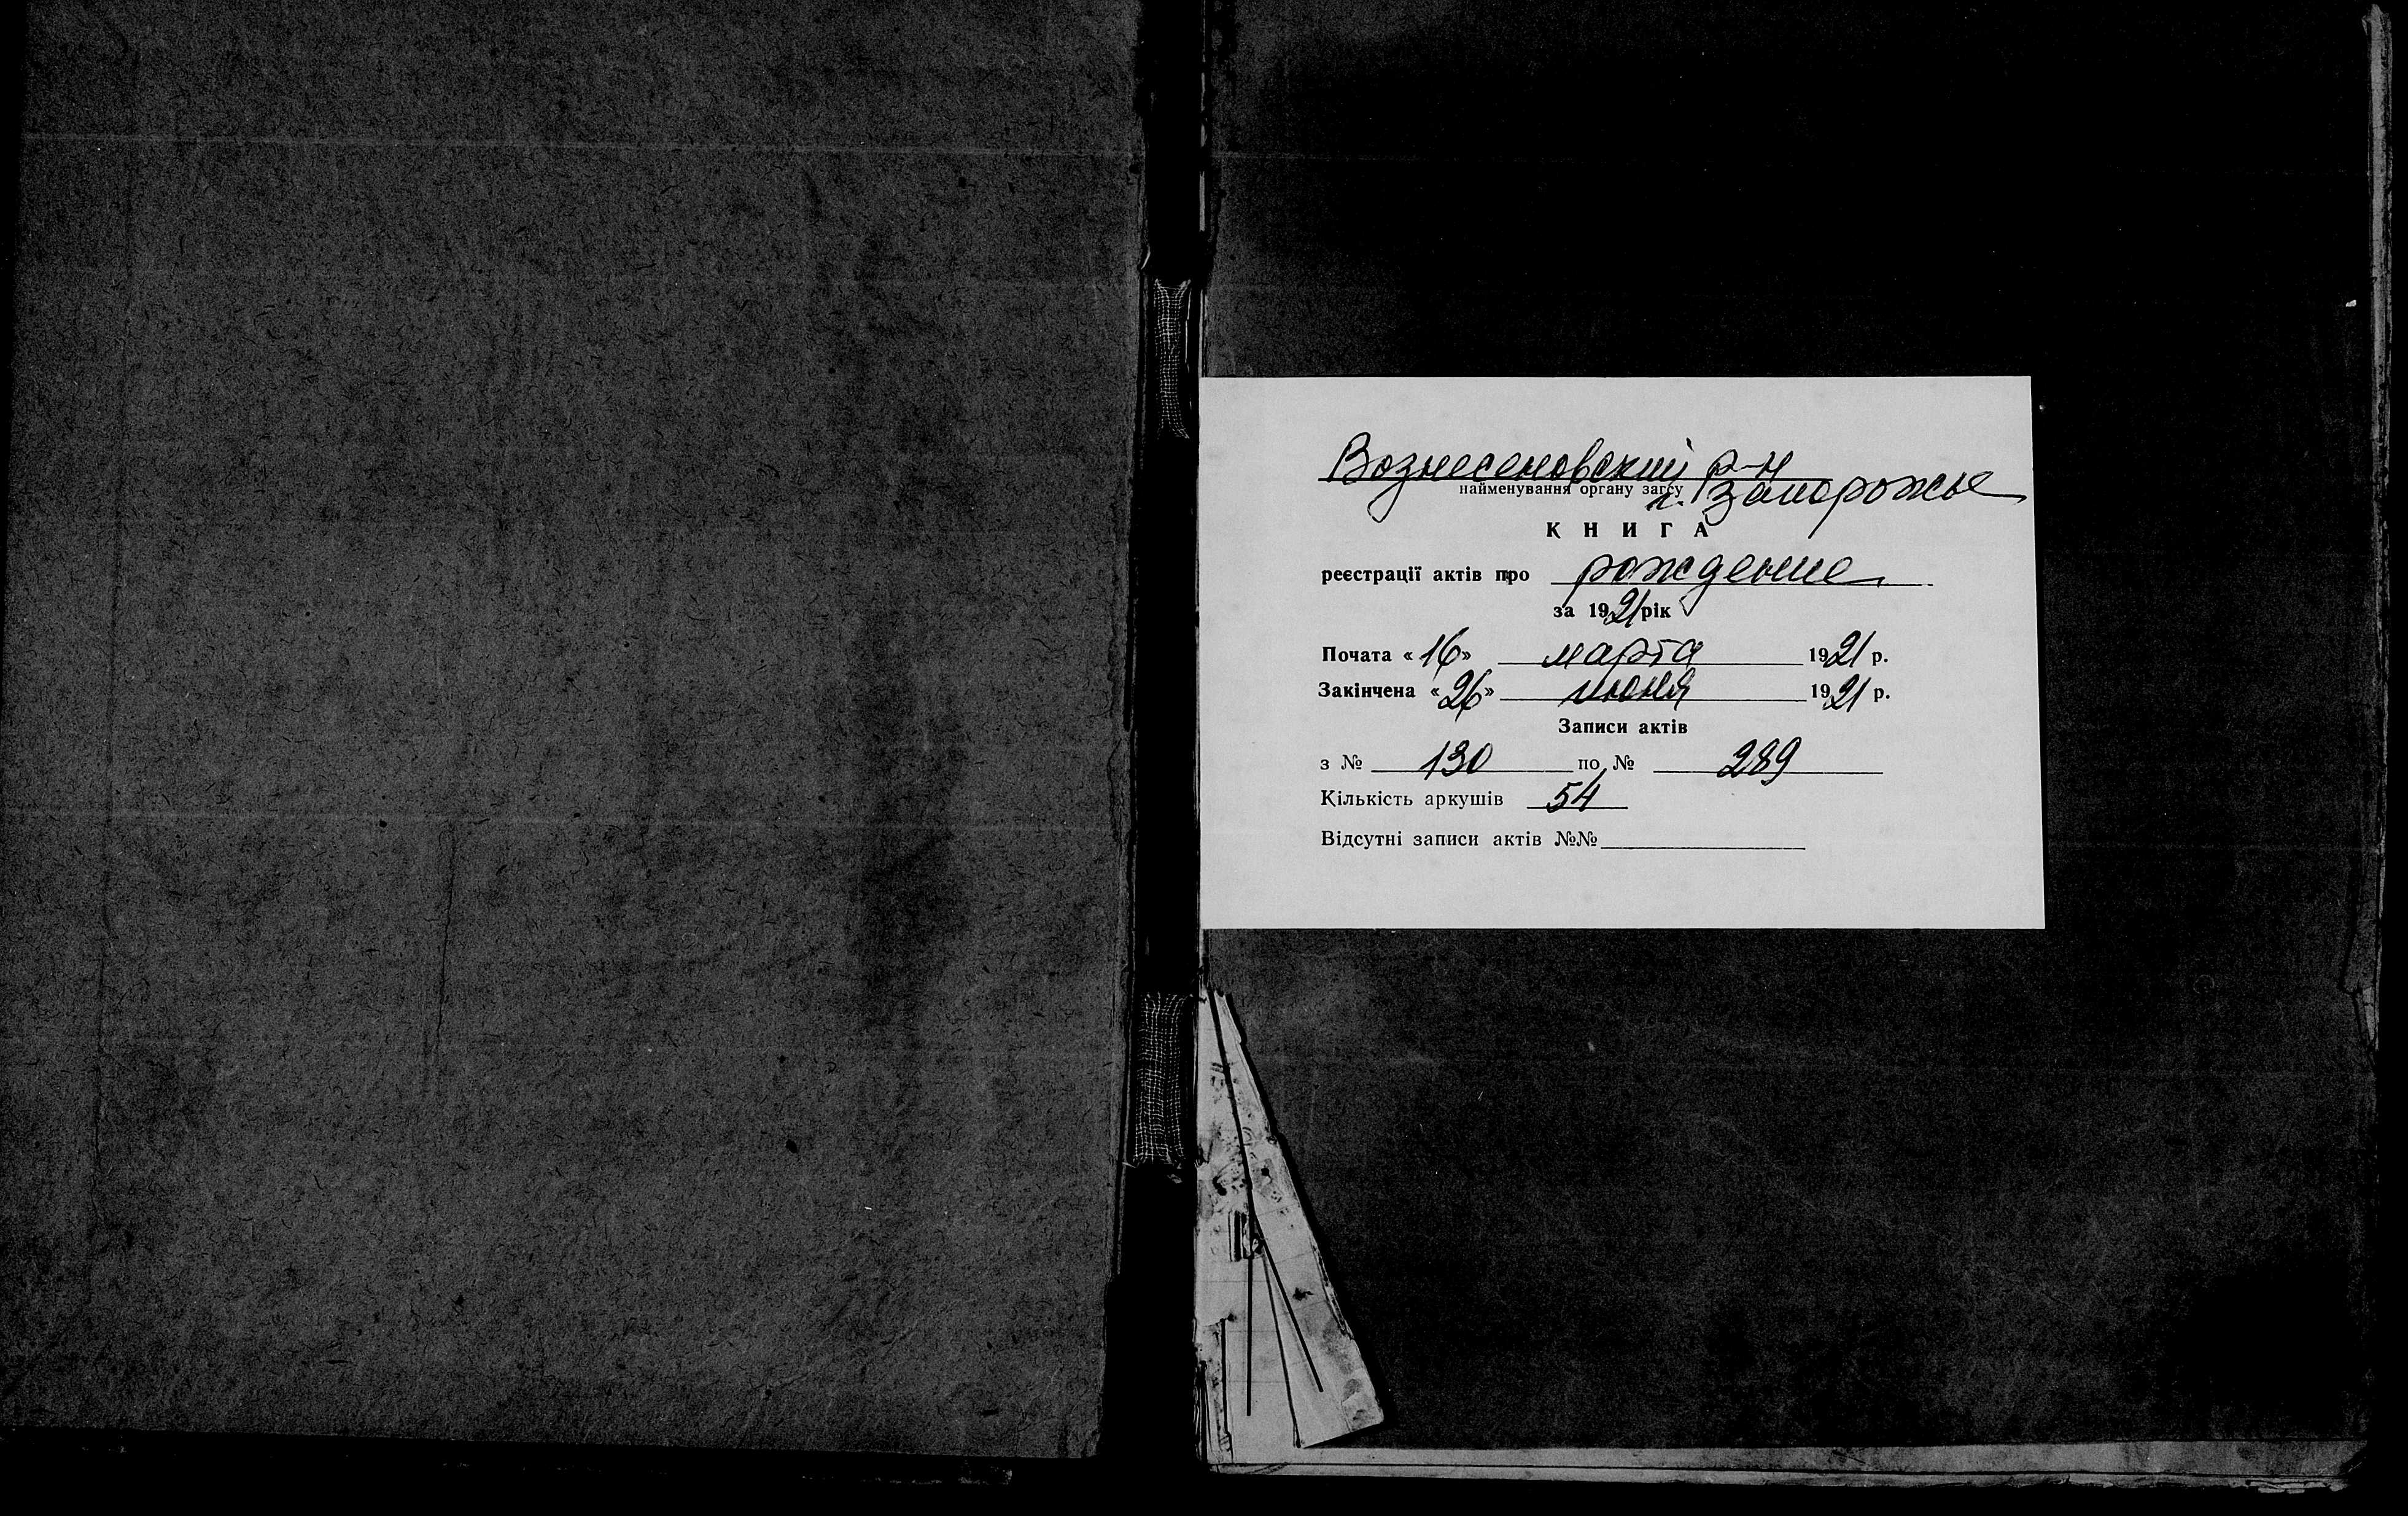 Вознесеновский р-н
найменування органу загсу
г. Запорожье
КНИГА
реєстрації актів про рождение
за 1921 рік
Почата «16» марта 1921 р.
Закінчена «26» июня 1921 р.
Записи актів
з № 130 по № 289
Кількість аркушів 54
Відсутні записи актів №№